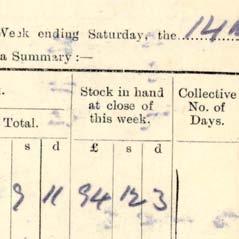 Week ending Saturday, the 14th
a Summary :—
Stock in hand
at close of
this week.
Collective
No. of
Days.
Total.
s d £ s d
9 11 94 12 3